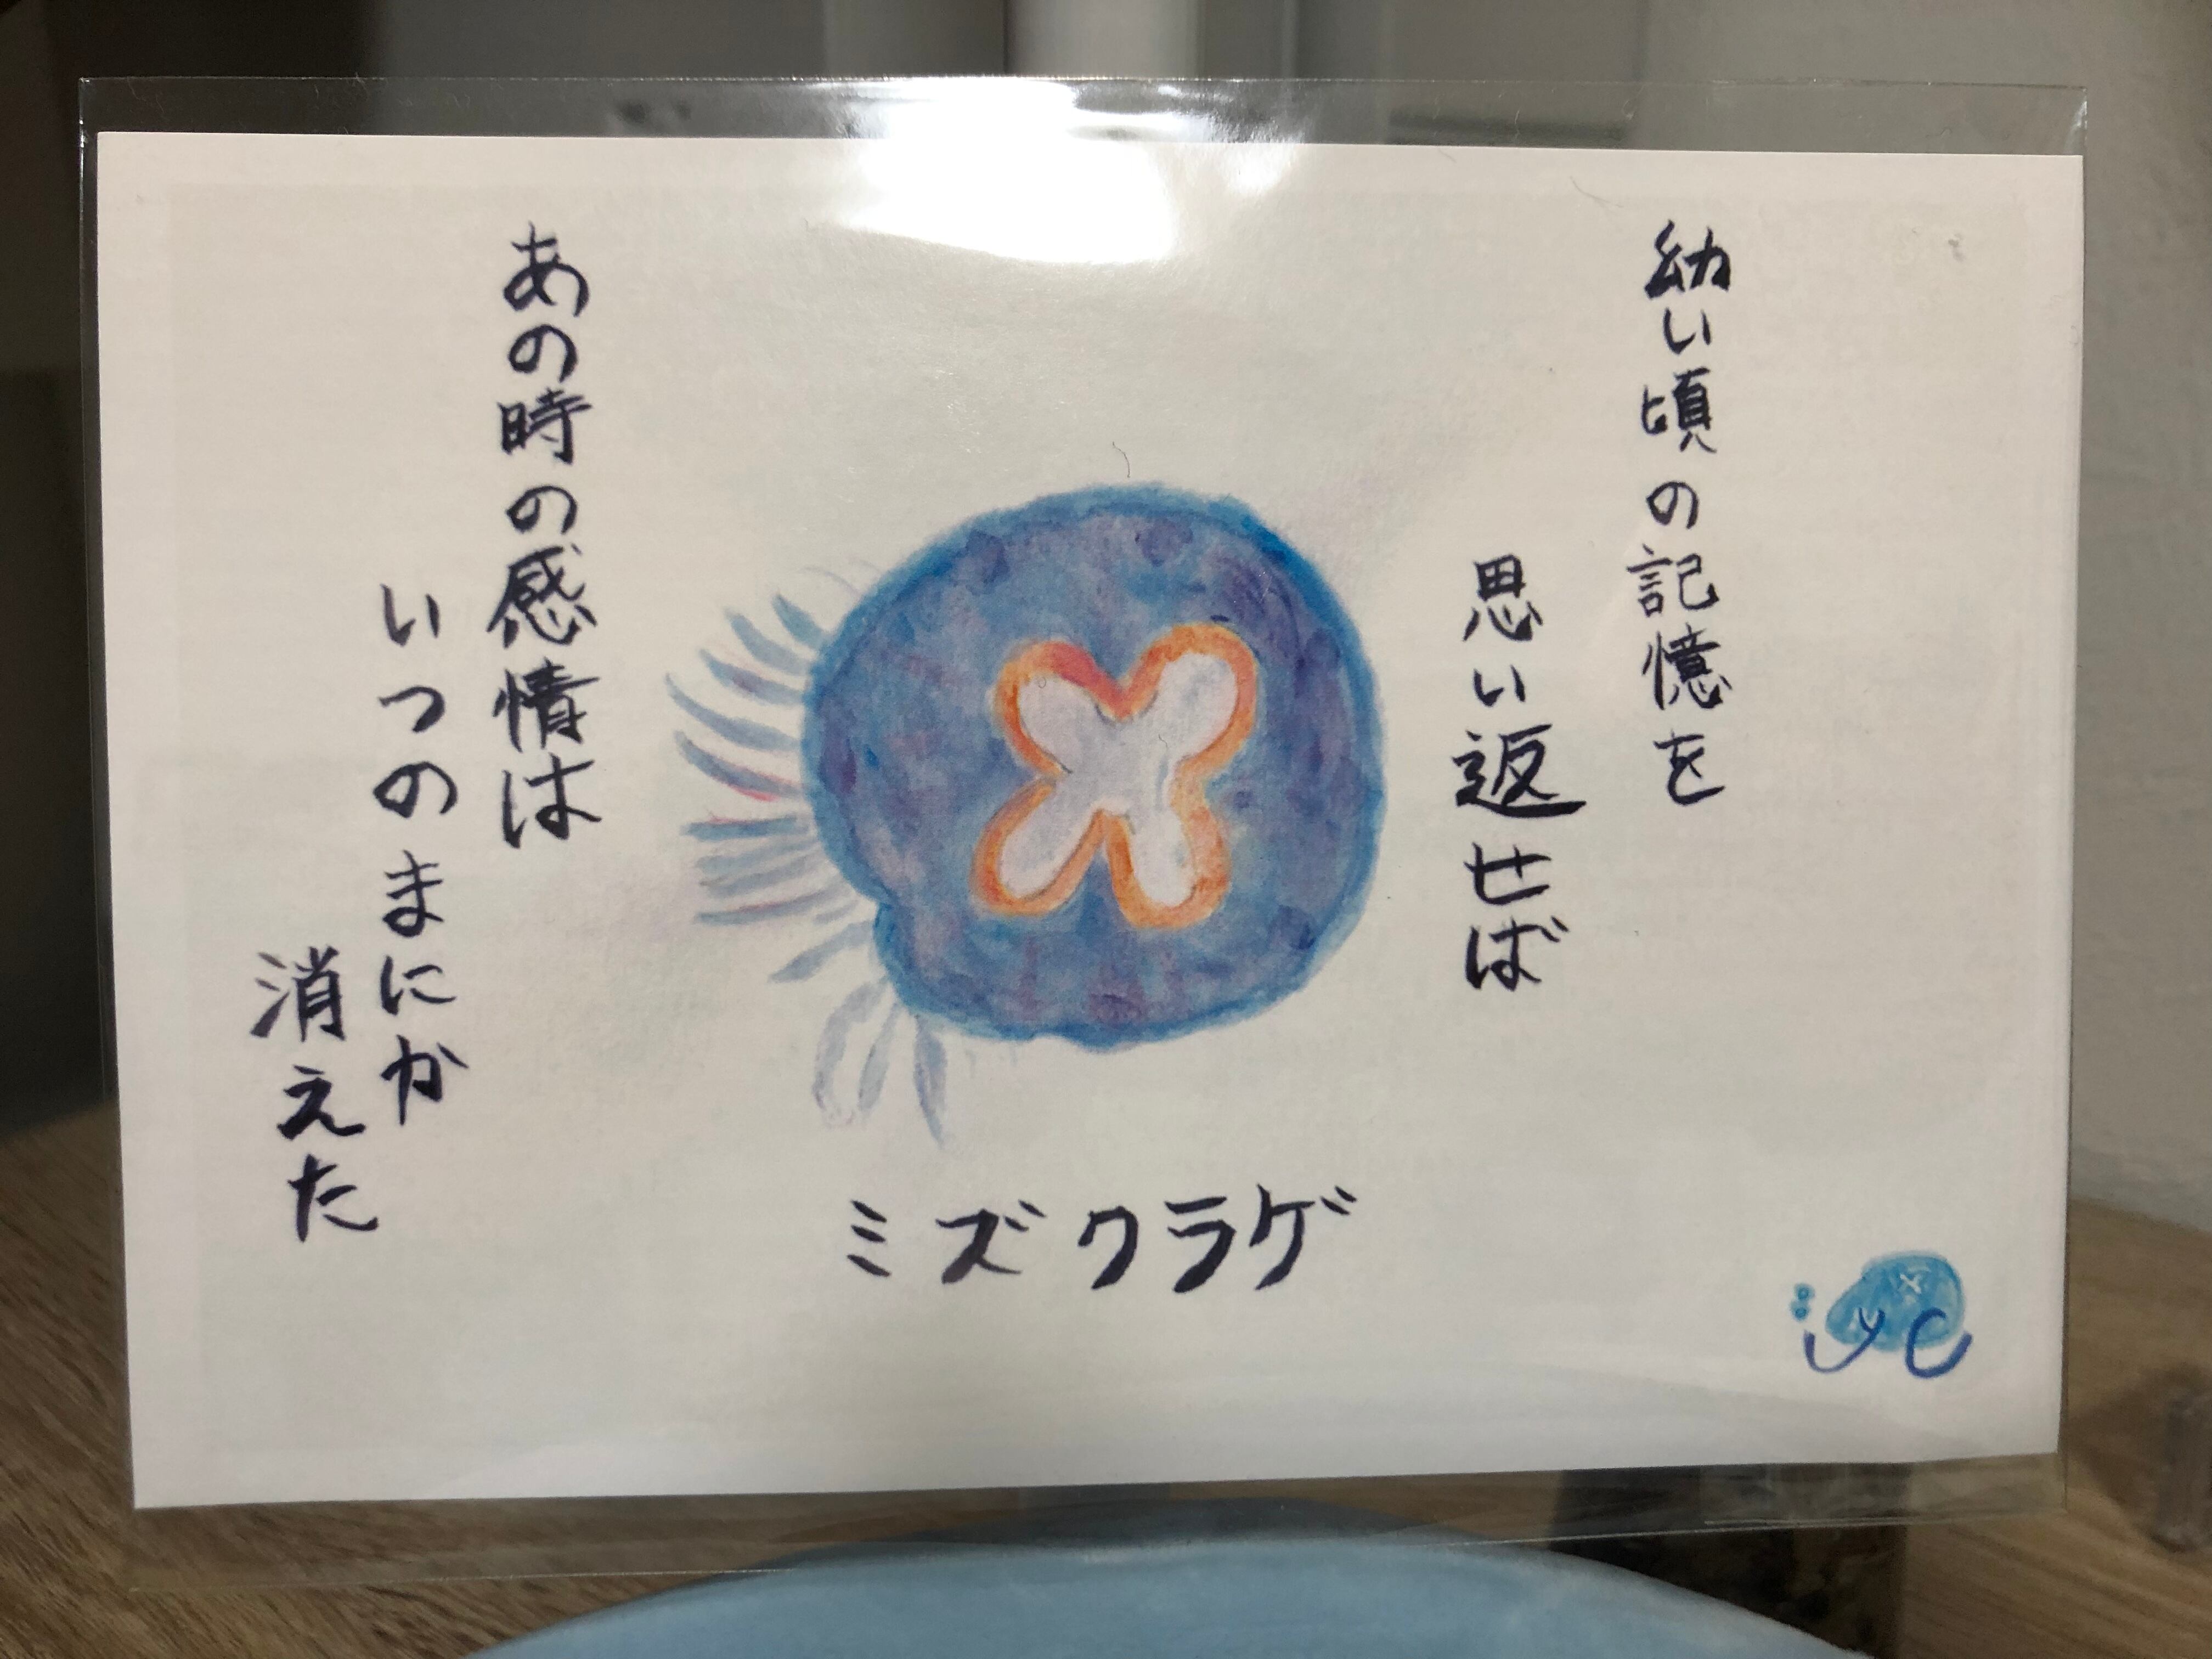 幼い頃の記憶を
思い返せば
あの時の感情は
いつのまにか
消えた
ミズクラゲ